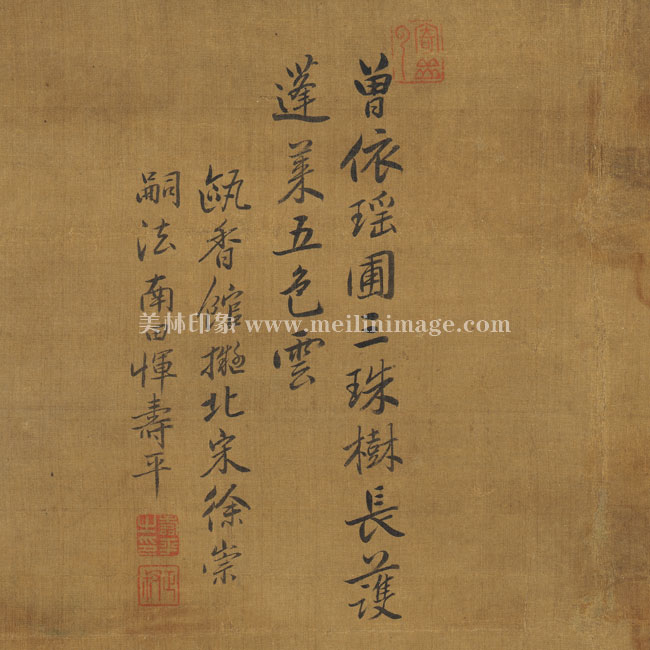 曾依瑶圃三珠樹長護
蓬萊五色雲
甌香館擬北宋徐崇
嗣法南田惲壽平
美林印象 www.meilinimage.com